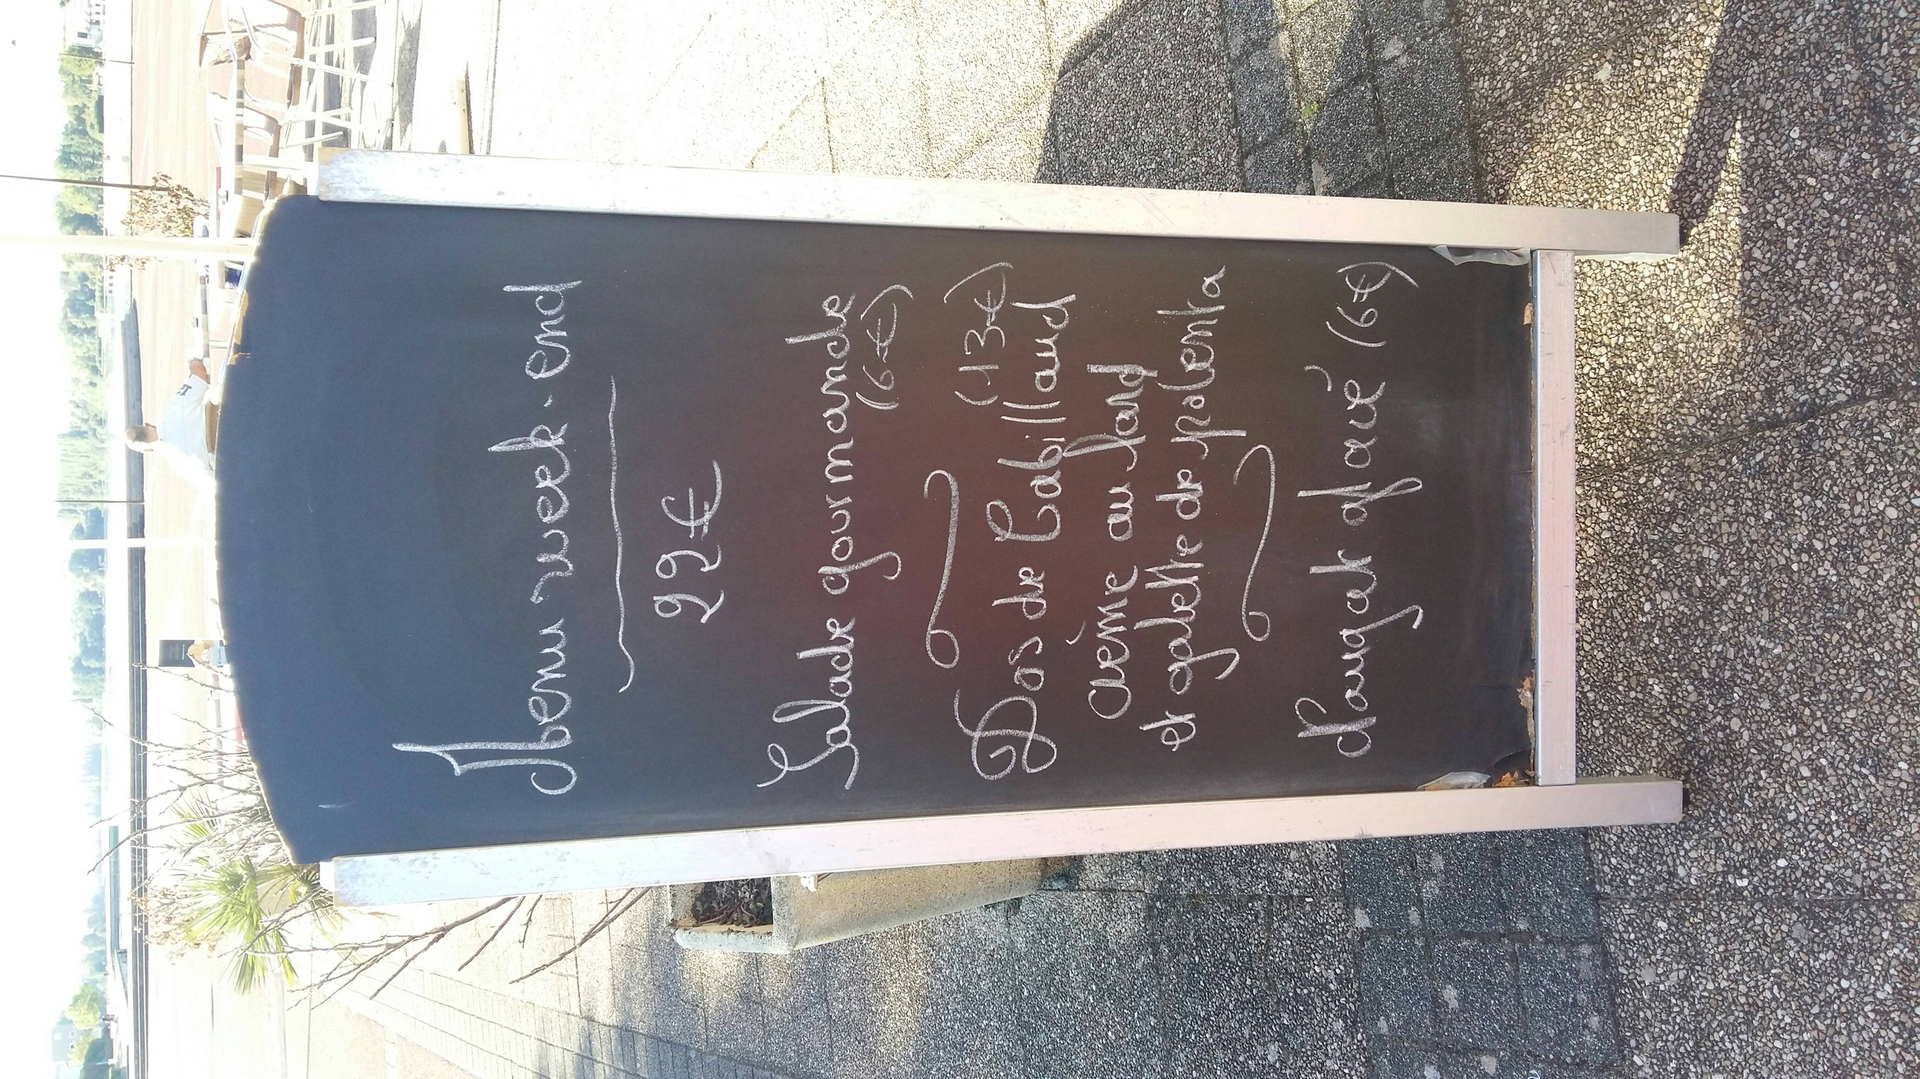 Menu week-end
22€
Salade gourmande
(6€)
(13€)
Dos de Cabillaud
crème au lard
et galette de polenta
Nougat glacé (6€)